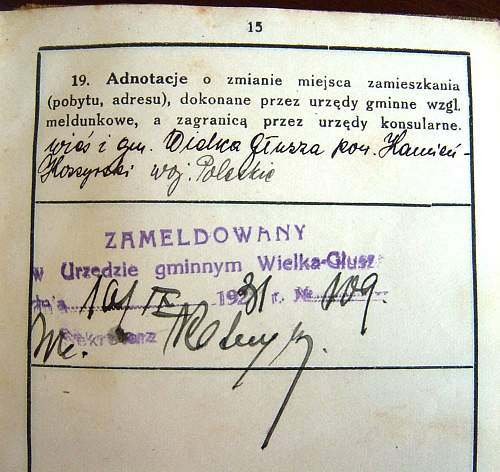 15
19. Adnotacje o zmianie miejsca zamieszkania
(pobytu, adresu), dokonane przez urzędy gminne wzgl.
meldunkowe, a zagranicą przez urzędy konsularne.
wieś i gm. Wielka Głusza pow. Kamień-
Koszyrski woj. Poleskie
ZAMELDOWANY
w Urzędzie gminnym Wielka-Głusz
dn'a IX 1931 r. № 109.
Sekretarz